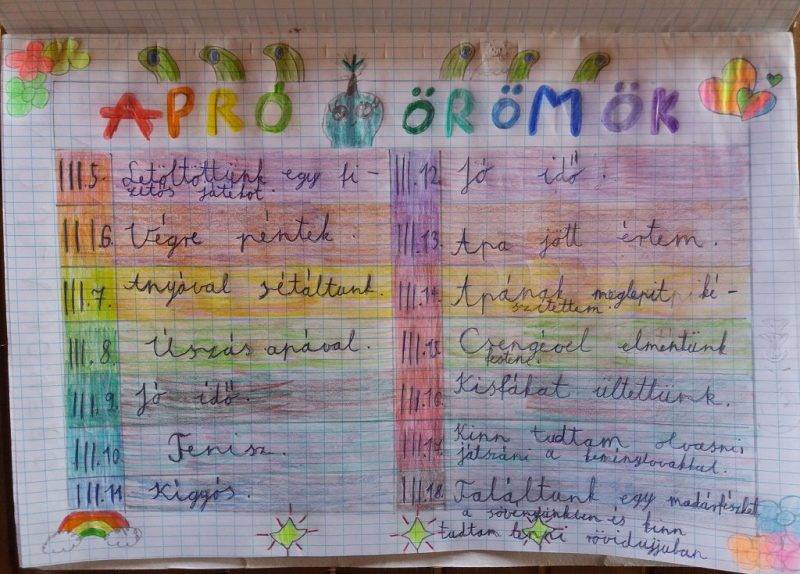 APRÓ ÖRÖMÖK
III.5. Letöltöttünk egy fi-
zetős játékot.
III.6. Végre péntek.
III.7. Anyóval sétáltunk.
III.8 Úszás apával.
III.9 Jó idő.
III.10 Tenisz.
III.11 Kígyós.
III.12. Jó idő.
III.13. Apa jött értem.
III.14. Apának meglepit ké-
szítettem.
III.15 Csengével elméntünk
festeni.
III.16. Kisfákat ültettünk.
III.17. Kinn tudtam olvasni,
játszani a keménylovakkal.
III.18. Találtunk egy madárfészket
a sövényünkben és kinn
tudtam lenni rövidujjúban